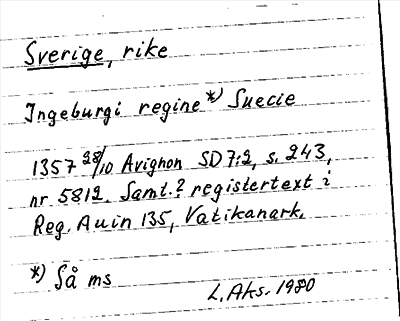 Sverige, rike
Ingeburgi regine *) Suecie
1357 28/10 Avignon SD 7:2, s. 243,
nr 5812. Samt.? registertext i
Reg. Auin 135, Vatikanark.
*) Så ms
L. Aks. 1980